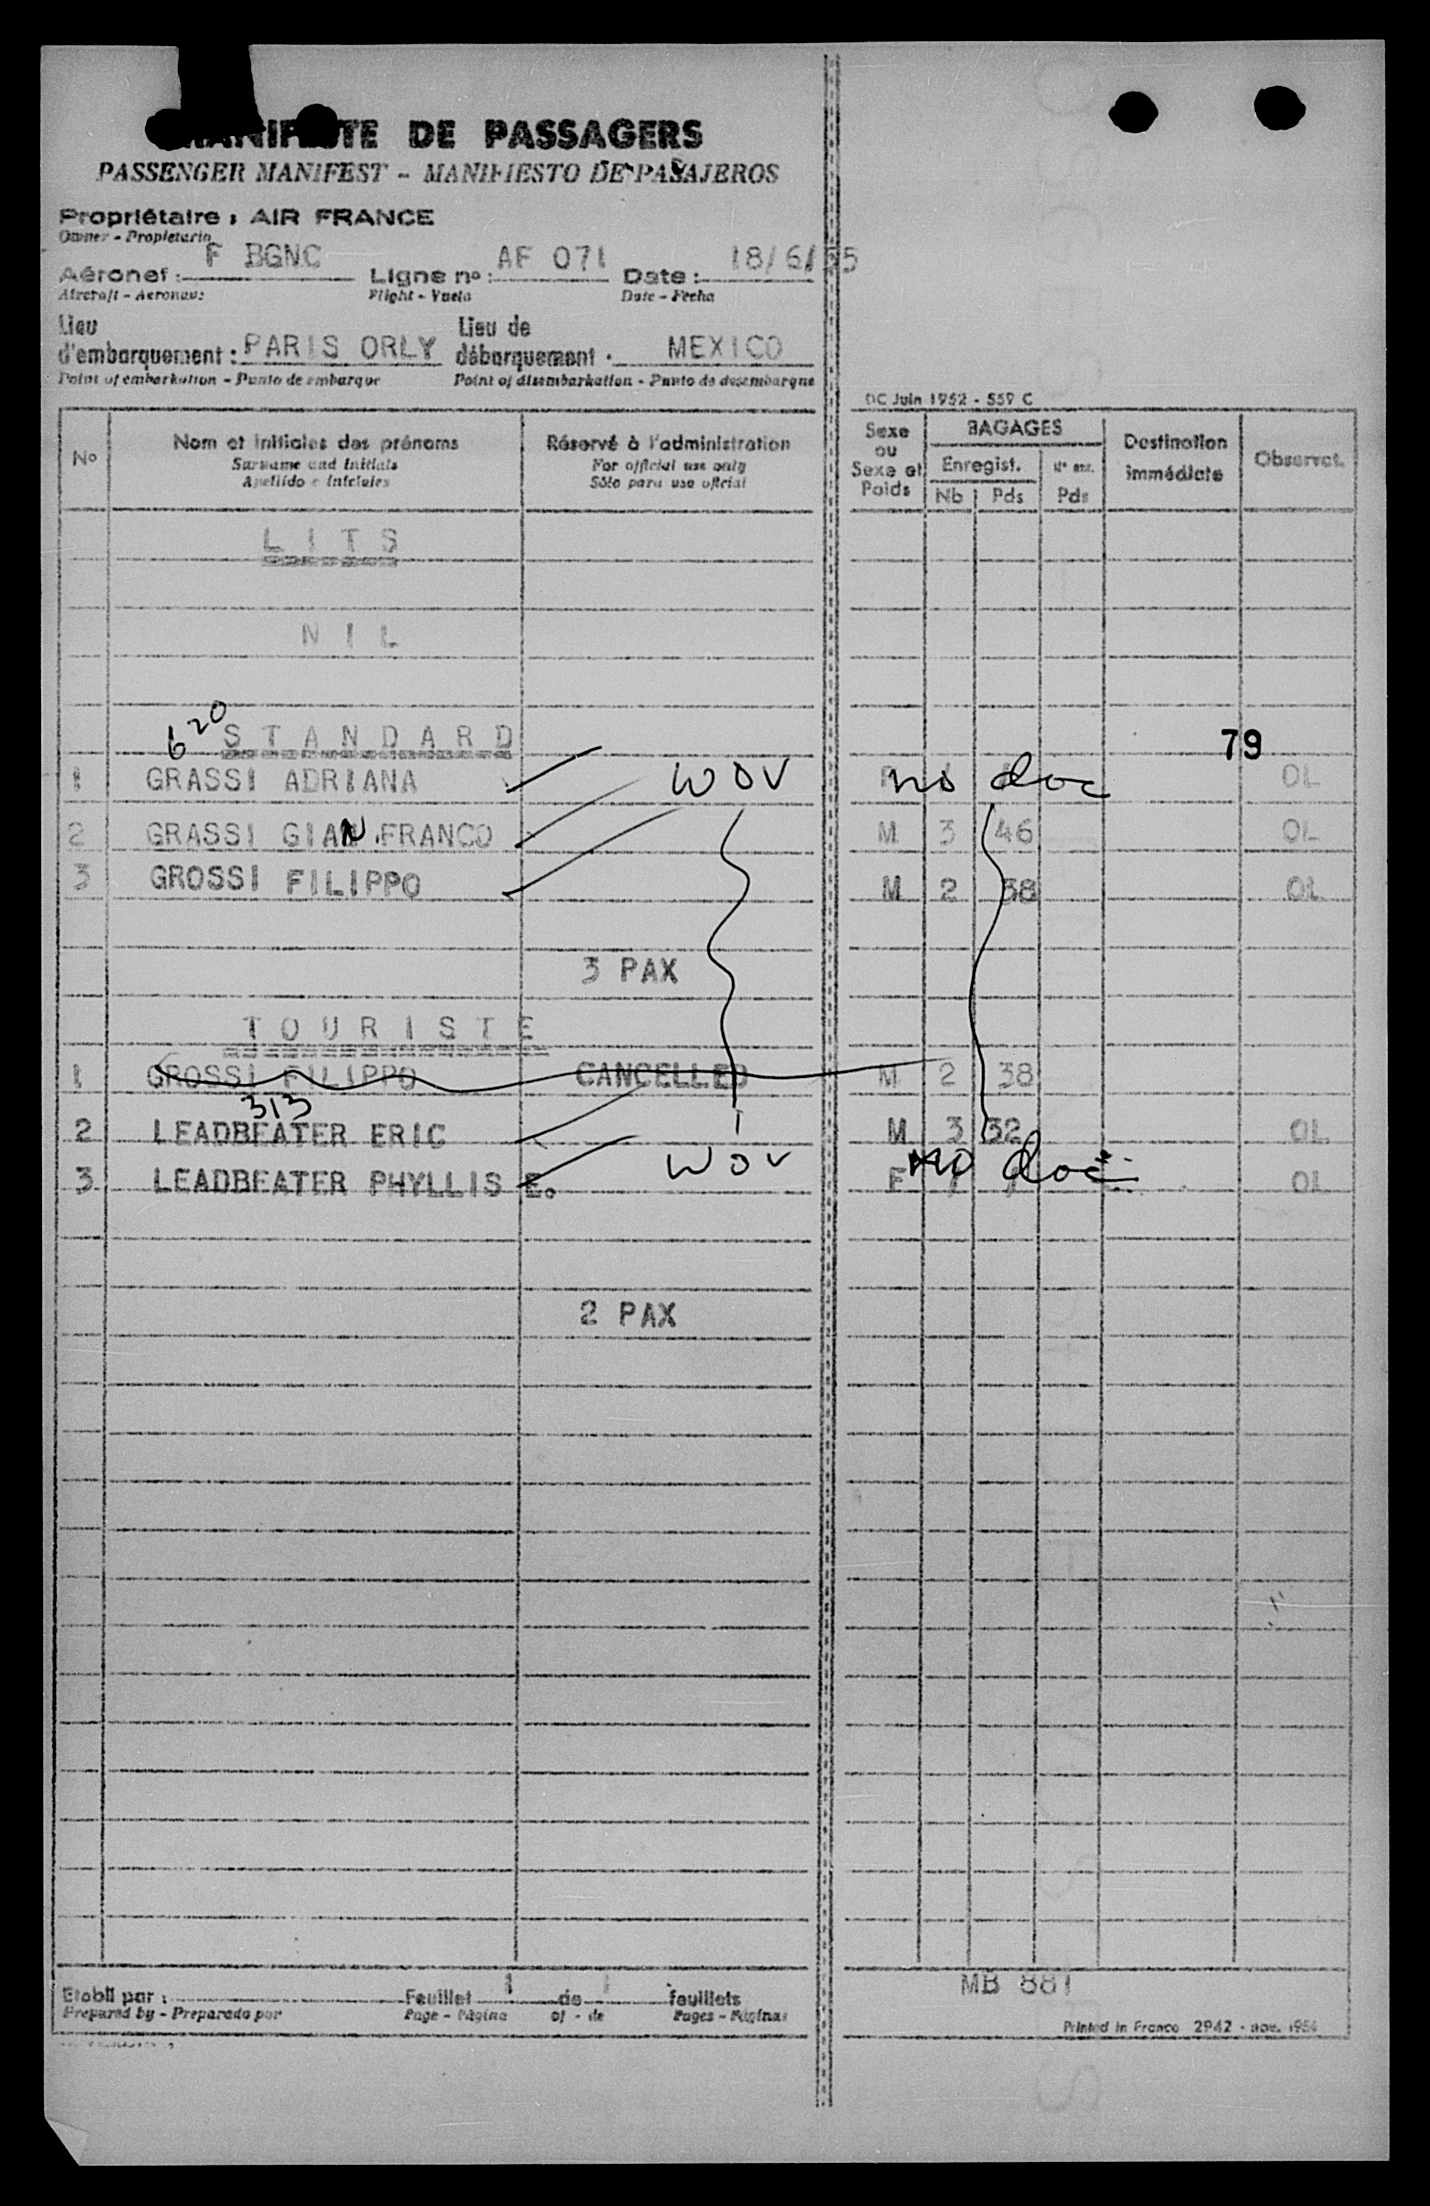 MANIFESTE DE PASSAGERS
PASSENGER MANIFEST - MANIFIESTO DE PASAJEROS
Propriétaire : AIR FRANCE
Owner - Propietario
Aéronef : F BGNC Ligne nº : AF 071 Date : 18/6/55
Aircraft - Aeronave Flight - Vuelo Date - Fecha
Lieu d'embarquement : PARIS ORLY Lieu de débarquement : MEXICO
Point of embarkation - Punto de embarque Point of disembarkation - Punto de desembarque
DC Juin 1952 - 559 C
Nº Nom et initiales des prénoms Réservé à l'administration Sexe ou Sexe et Poids BAGAGES Destination immédiate Observat.
Surname and Initials For official use only Enregist.
Apellido e iniciales Sólo para uso oficial Nb Pds Pds
L I T S
N I L
620
S T A N D A R D
79
1 GRASSI ADRIANA WOV no doc OL
2 GRASSI GIAN FRANCO M 3 46 OL
3 GROSSI FILIPPO M 2 38 OL
3 PAX
T O U R I S T E
1 GROSSI FILIPPO CANCELLED M 2 38
313
2 LEADBEATER ERIC M 3 32 OL
3 LEADBEATER PHYLLIS E. WOV F no doc OL
2 PAX
Etabli par : Feuillet 1 de 1 feuillets MB 881
Prepared by - Preparado por Page - Página of - de Pages - Páginas
Printed in France 2942 - nov. 1954